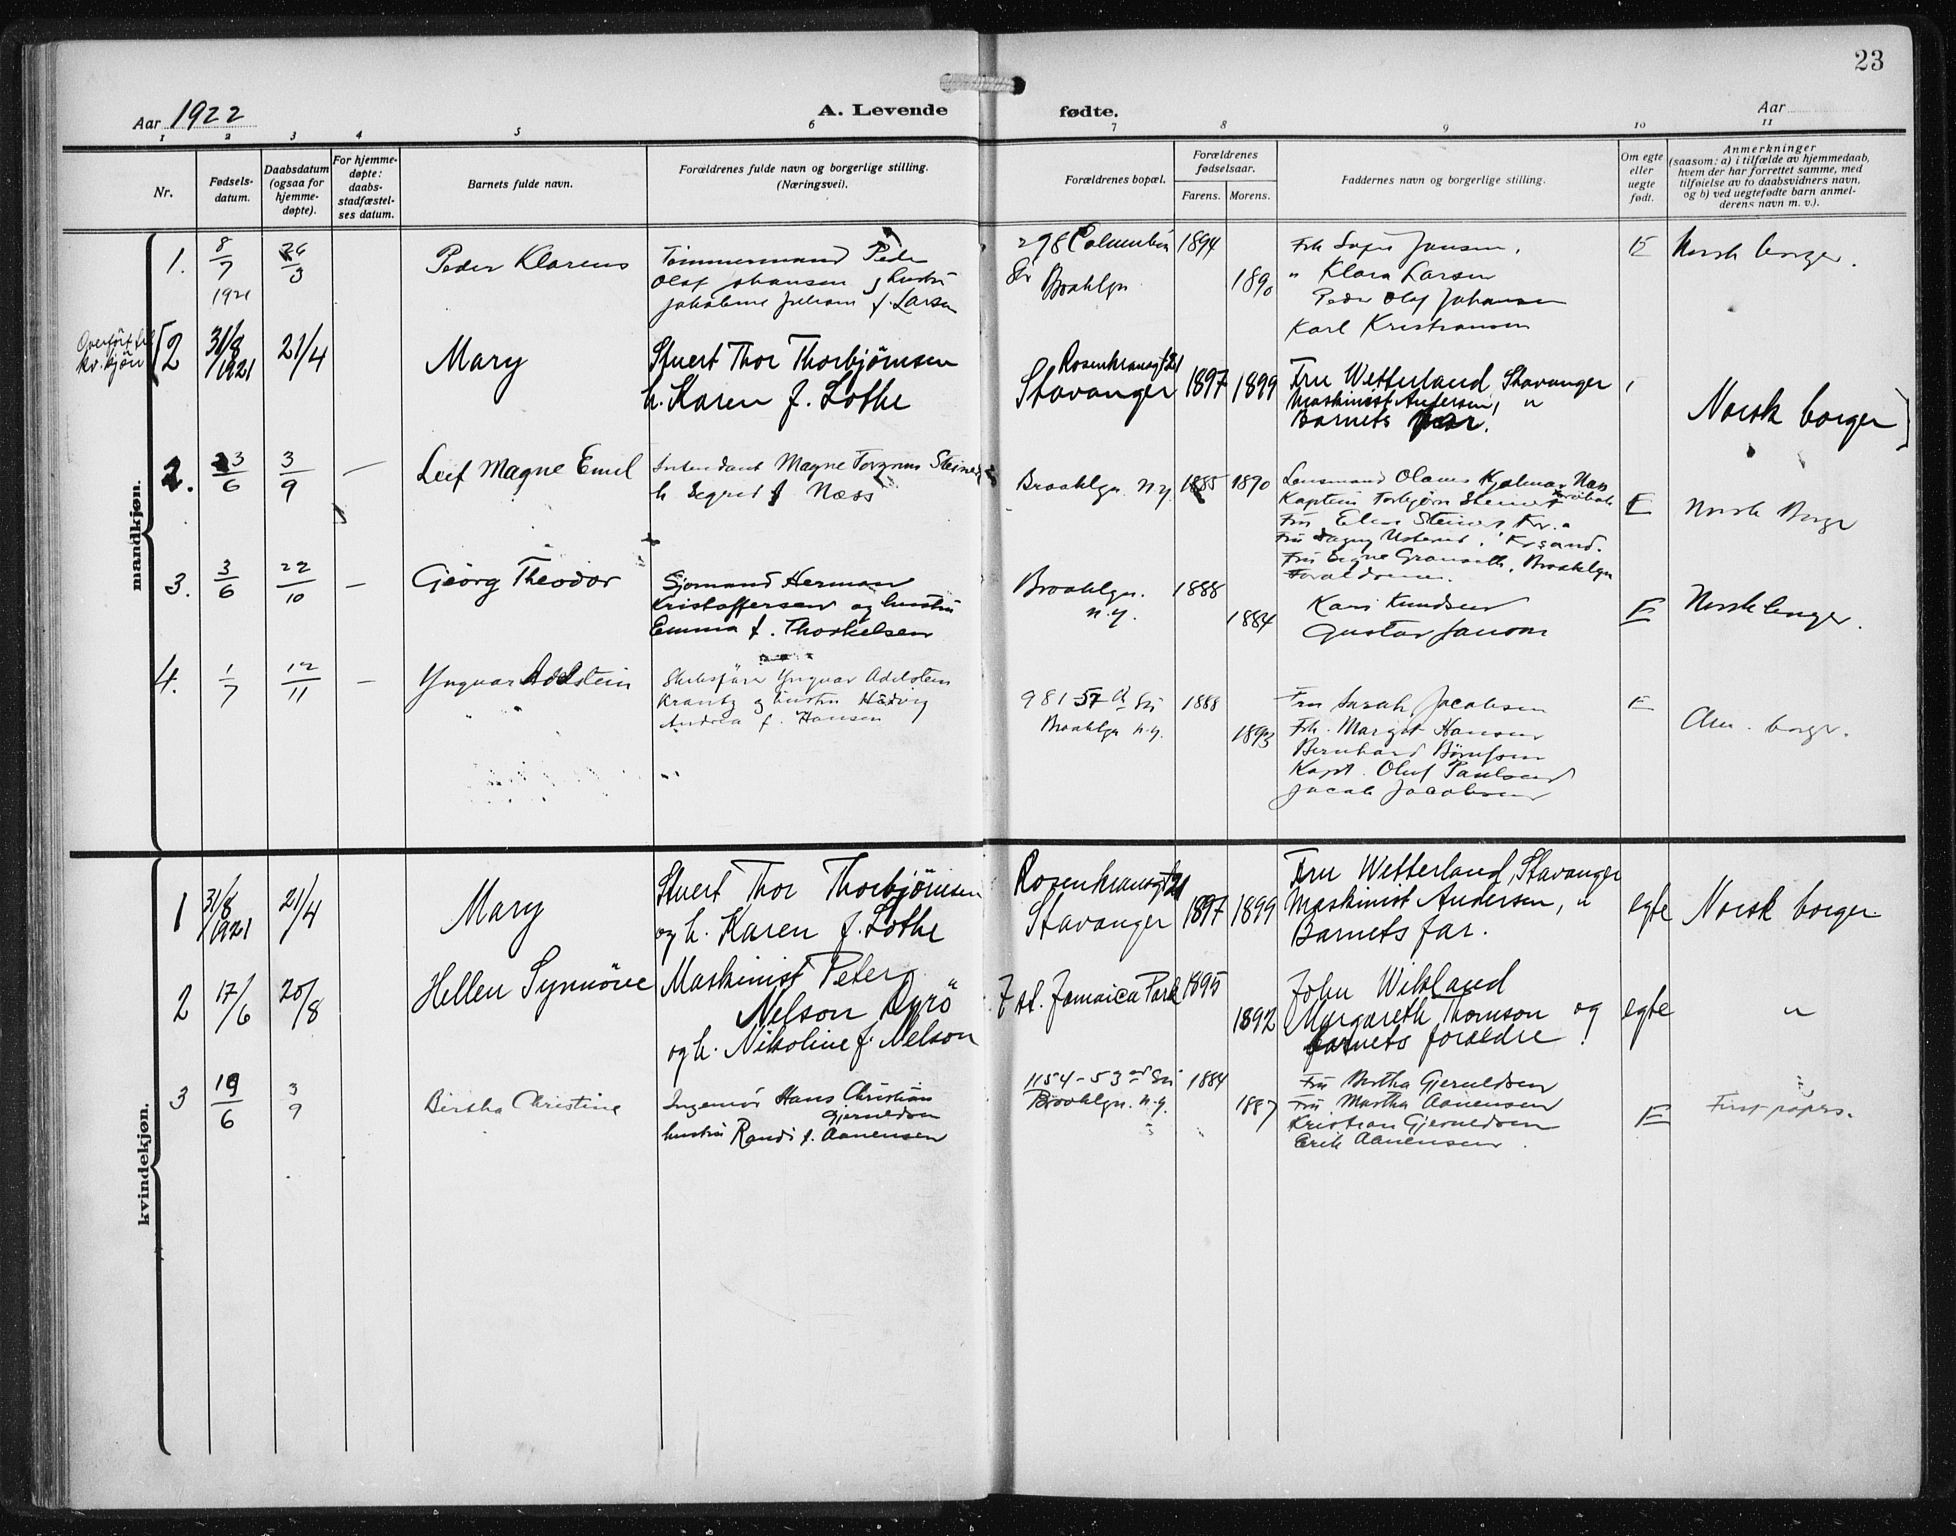 23
Aar 1922
A. Levende
fødte.
Aar
1 2 3 4 5 6 7 8 9 10 11
Nr.
Fødsels-
datum.
Daabsdatum
(ogsaa for
hjemme-
døpte).
For hjemme-
døpte:
daabs-
stadfæstel-
ses datum.
Barnets fulde navn.
Forældrenes fulde navn og borgerlige stilling.
(Næringsvei).
Forældrenes bopæl.
Forældrenes
fødselsaar.
Farens. Morens.
Faddernes navn og borgerlige stilling.
Om egte
eller
uegte
født.
Anmerkninger
(saasom: a) i tilfælde av hjemmedaab,
hvem der har forrettet samme, med
tilføielse av to daabsvidners navn,
og b) ved uegtefødte barn anmel-
derens navn m. v.).
mandkjøn.
1. 8/7 1921
26/3
Peder Klarens
Tømmermand Peder
Olaf Johansen og hustru
f. Larsen
298 Columbia
Str Brooklyn
1894
1890
Frk Jansen,
" Klara Larsen
Peder Olaf Johansen
Karl Kristiansen
E
Norsk borger.
Overført til
kv. kjøn
[2 31/8 1921
21/4
Mary
Stuert Thor Thorbjörnsen
h. Karen f. Lothe
Rosenkransgt 21
Stavanger
1897 1899
Fru Wetterland, Stavanger
Maskinist Andersen, "
Barnets far.
Norsk borger]
2. 23/6
3/9
—
Leif Magne Emil
Intendant Magne Steines
h. Segred f Næss
Brooklyn N.Y.
1885 1890
Lensmand Olaus Hjalmar Næss
Kaptein Torbjørn
Fru
Fru Dagny
Fru Signe Brooklyn
Forældrene.
E
Norsk Borger
3. 3/6
22/10
—
Georg Theodor
Sjømand Herman
Kristoffersen og hustru
Emma f. Thorkelsen
Brooklyn.
N.Y.
1888
1884
Kari Knudsen
Gustav
E
Norsk borger.
4. 1/7
12/11
—
Yngvar Adelstein
Skibsfører Yngvar Adelstein
Krantz og hustru Hedvig
Andrea f. Hansen
981-57 St
Brooklyn N.Y.
1888
1893
Fru Sarah Jacobsen
Frk. Margit Hansen
Bernhard
Kapt. Oluf Paulsen
Jacob Jacobsen
E
Am. borger.
kvindekjøn.
1 31/8 1921
21/4
Mary
Stuert Thor Thorbjörnsen
og h. Karen f. Lothe
Rosenkransgt 21
Stavanger
1897 1899
Fru Wetterland, Stavanger
Maskinist Andersen, "
Barnets far.
egte
Norsk borger
2 17/6
20/8
Hellen Synnöve
Maskinist Peter
Nelson Dyrö
og h. Nikoline f. Nelson
7 st. Jamaica Park
1895
1892
John Wikland
Margareth Thomson og
barnets foreldre!
egte
"
3 19/6
3/9
Birtha Christine
Ingeniør Hans Christian
Gjeruldsen
hustru Randi f. Aanensen
1154-53rd Str
Brooklyn. N.Y.
1884
1887
Fru Bertha Gjeruldsen
Fru Martha Aanensen
Kristian Gjeruldsen
Erik Aanensen
E
First papers.